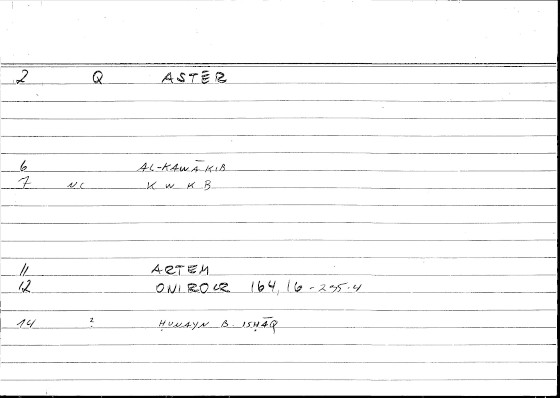 2 Q ASTĒR
6 AL-KAWĀKIB
7 NC K W K B
11 ARTEM
12 ONIROCR 164,16 - 295.4
14 ? ḤUNAYN B. ISḤĀQ